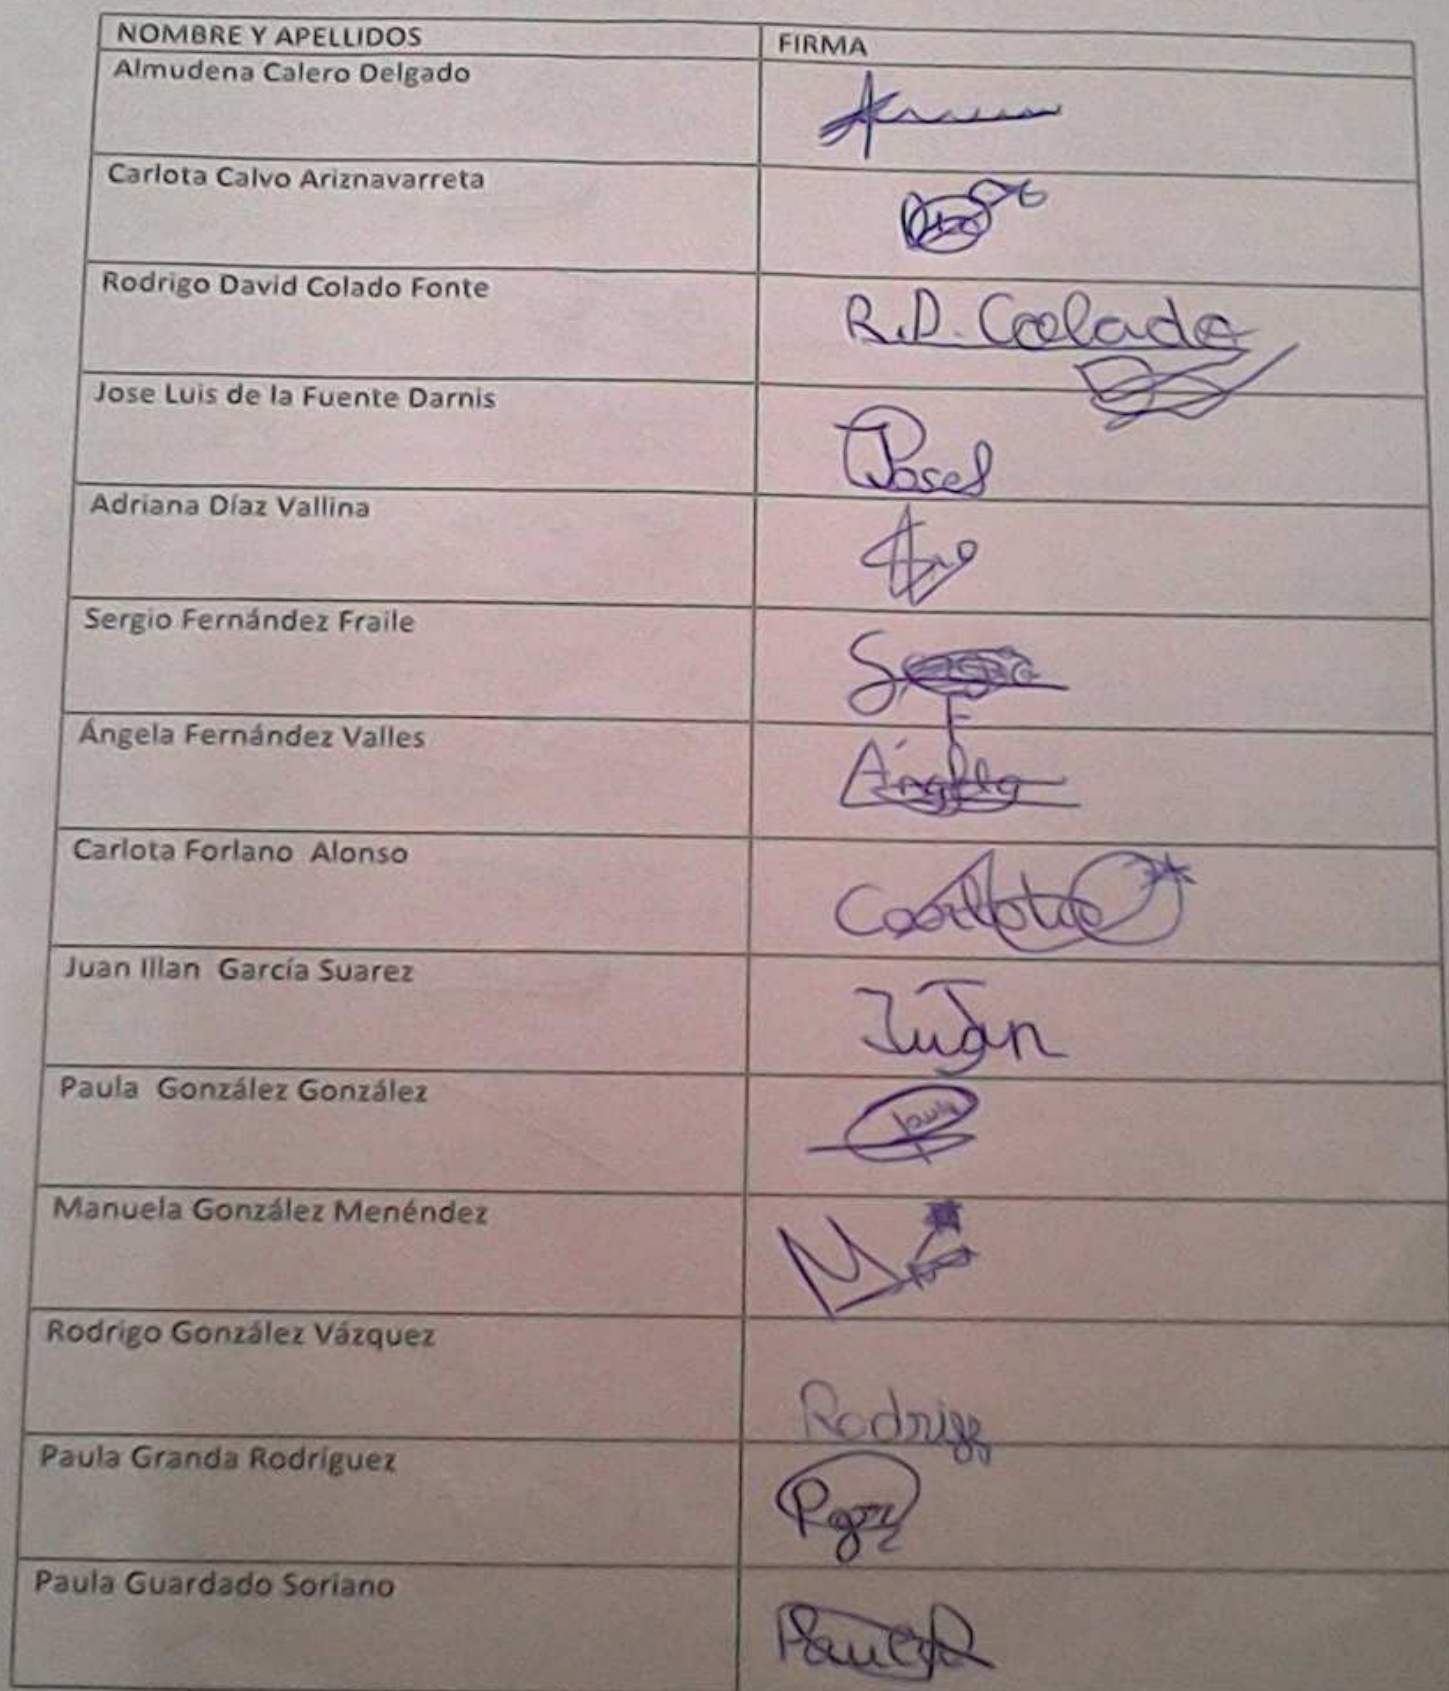 NOMBRE Y APELLIDOS FIRMA
Almudena Calero Delgado
Carlota Calvo Ariznavarreta
Rodrigo David Colado Fonte R.D. Colado
Jose Luis de la Fuente Darnis Josel
Adriana Díaz Vallina
Sergio Fernández Fraile Sergio
F
Ángela Fernández Valles Ángela
Carlota Forlano Alonso Carlota
Juan Illan García Suarez Juan
Paula González González Paula
Manuela González Menéndez M
Rodrigo González Vázquez Rodrigo
Paula Granda Rodríguez
Paula Guardado Soriano